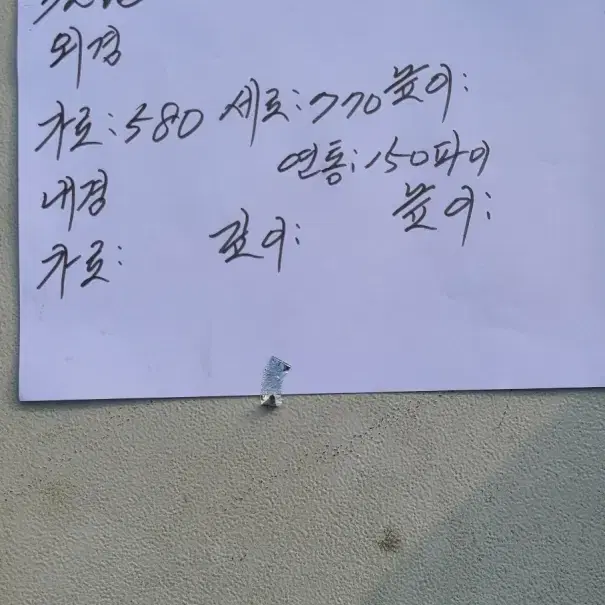 외경
가로:580 세로:770 높이:
연통:150파이
내경
높이:
가로: 깊이: